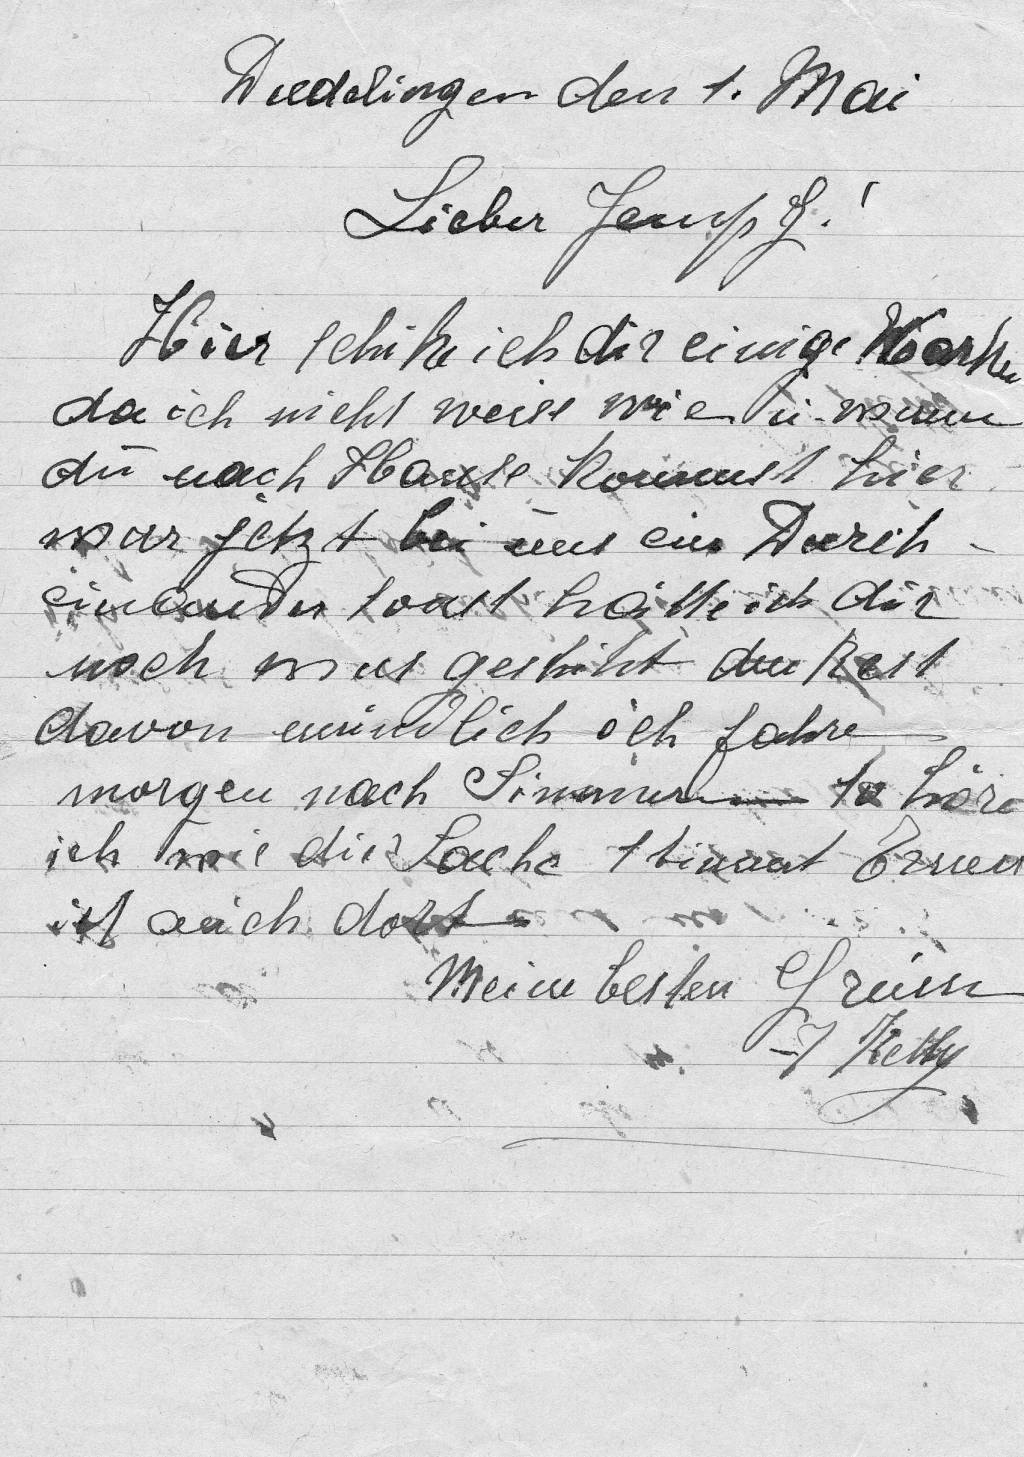 Düdelingen den 1. Mai
Lieber Jemp G.!
Hier schike ich dir einige Marken
da ich nicht weiss wie ü wann
dü nach Hause kommst hier
war jetzt bei üns ein Dürch-
einander sonst hätte ich dir
noch was geschikt den Rest
davon mündlich ich fahre
morgen nach Simmern so höre
ich wie die Sache stimmt
ist auch dort
Meine besten Grüsse
Ketty